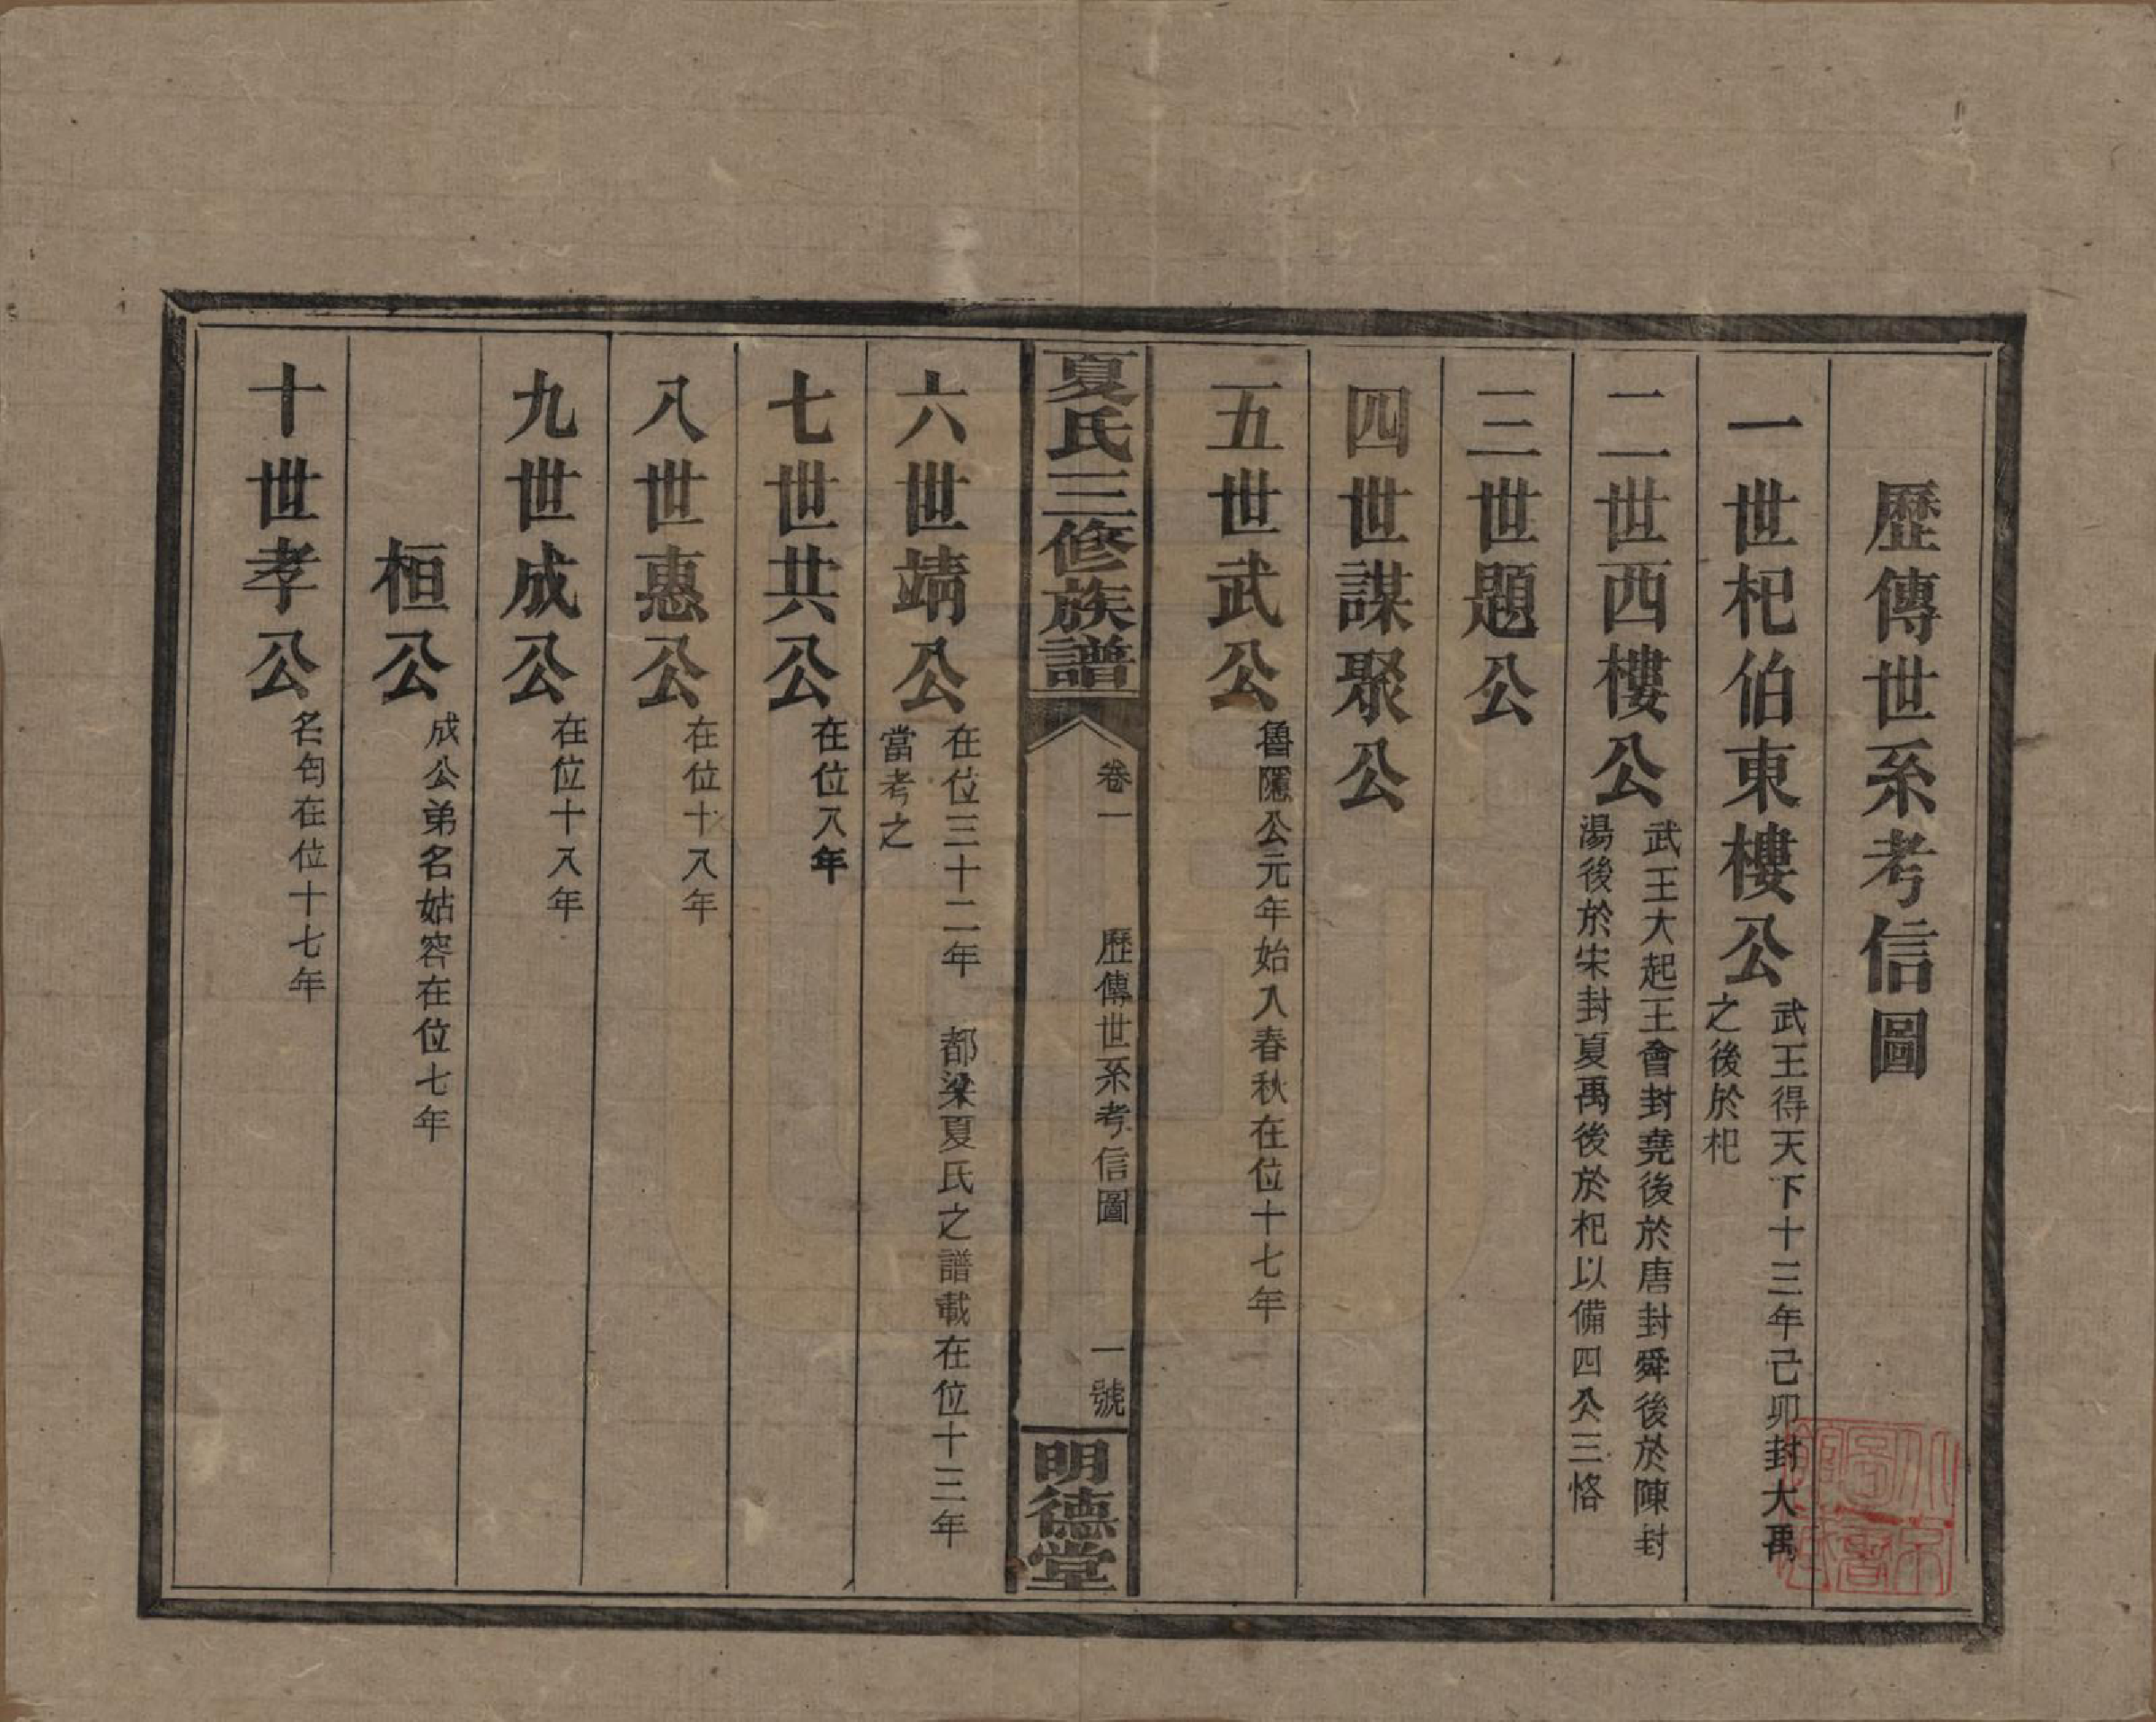 歷傳世系考信圖
一世杞伯東樓公
武王得天下十三年己卯封大禹
之後於杞
二世西樓公
武王大起王會封堯後於唐封舜後於陳封
湯後於宋封夏禹後於杞以備四公三恪
三世題公
四世謀聚公
五世武公
魯隱公元年始入春秋在位十七年
夏氏三修族譜
卷一
歷傳世系考信圖
一號
明德堂
六世靖公
在位三十二年 都梁夏氏之譜載在位十三年
當考之
七世共公
在位八年
八世惠公
在位十八年
九世成公
在位十八年
桓公
成公弟名姑容在位七年
十世孝公
名匄在位十七年